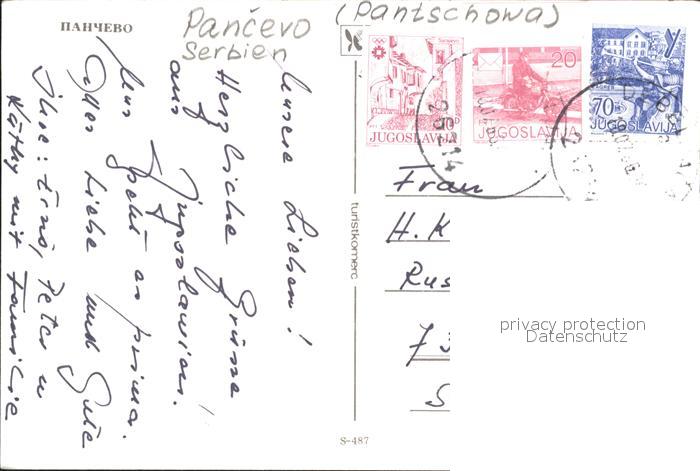 ПАНЧЕВО
Pančevo (Pantschowa)
Serbien
Unsere Lieben!
Herzliche Grüsse
aus Jugoslawien!
Uns geht es prima.
Alles Liebe und Gute
Ihre: Erns, Peter u
Käthy mit Familie
turistkomerc
S-487
Sarajevo
JUGOSLAVIJA
20
JUGOSLAVIJA
70
JUGOSLAVIJA
Frau
H. K
Rus
privacy protection
Datenschutz